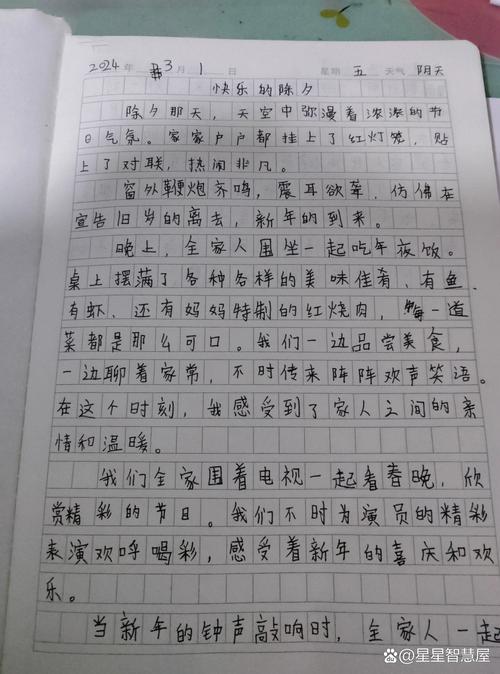 2024年 3月 1日 星期 五 天气 阴天
快乐的除夕
除夕那天，天空中弥漫着浓浓的节
日气氛。家家户户都挂上了红灯笼，贴
上了对联，热闹非凡。
窗外鞭炮齐鸣，震耳欲聋，仿佛在
宣告旧岁的离去，新年的到来。
晚上，全家人围坐一起吃年夜饭。
桌上摆满了各种各样的美味佳肴、有鱼、
有虾、还有妈妈特制的红烧肉，每一道
菜都是那么可口。我们一边品尝美食，
一边聊着家常，不时传来阵阵欢声笑语。
在这个时刻，我感受到了家人之间的亲
情和温暖。
我们全家围着电视一起看春晚，欣
赏精彩的节目。我们不时为演员的精彩
表演欢呼喝彩，感受着新年的喜庆和欢
乐。
当新年的钟声敲响时，全家人一起
星星智慧屋